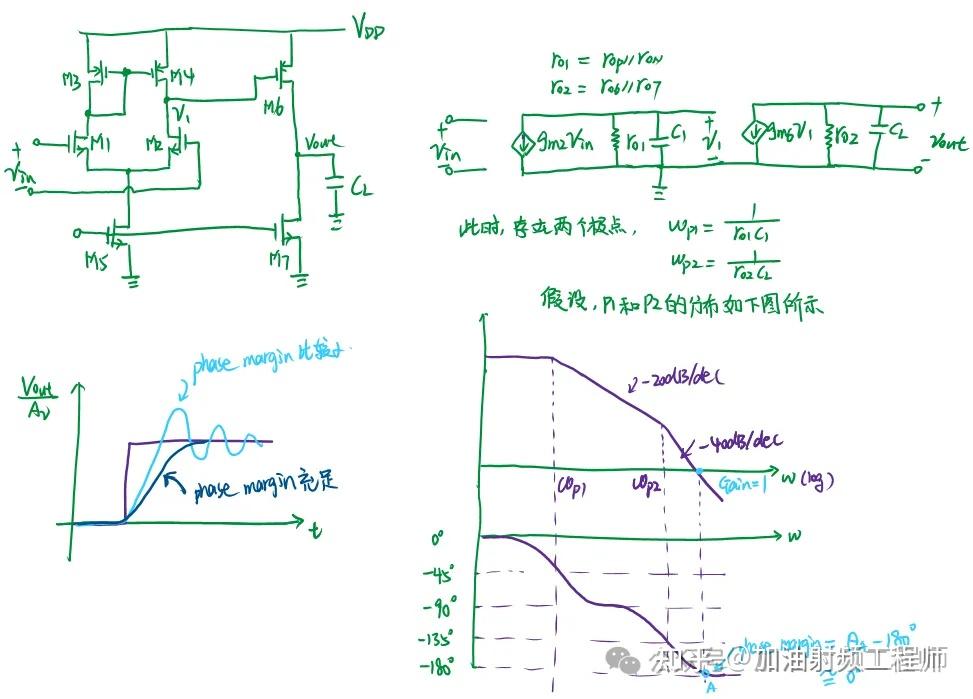 VDD
M3
M4
M6
V1
M1
M2
Vout
+
Vin
-
CL
M5
M7
ro1 = rop//ron
ro2 = ro6//ro7
+
Vin
-
gm2Vin
ro1
C1
+
V1
-
gm6V1
ro2
CL
+
Vout
-
此时,存在两个极点, ωp1 = 1/ro1C1
ωp2 = 1/ro2CL
假设,P1和P2的分布如下图所示
phase margin 比较小
Vout/Av
phase margin 充足
t
-20dB/dec
-40dB/dec
ωp1
ωp2
Gain=1
w (log)
0°
w
-45°
-90°
-135°
-180°
phase margin = A -180°
≅ 0°
A
知乎 @加油射频工程师